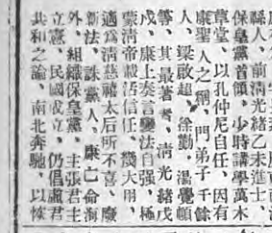 縣人、前清光緒乙未進士、
保皇黨首領、少時講學萬木
草堂、以孔仲尼自任、因有
康聖人之稱、門弟子千餘
人、梁啟超、徐勤、湯覺頓
等、其最著者、清光緒戊
戌、康上奏言變法自强、極
蒙清帝載湉信任、擬大用、
適為清慈禧太后所不喜、廢
新法、誅黨人、康亡命海
外、組織保皇黨、主張君主
立憲、民國成立、仍倡虛君
共和之論、南北奔馳、以恢